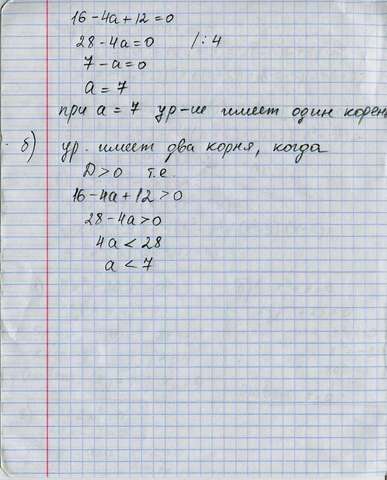 16-4a+12=0
28-4a=0 /:4
7-a=0
a=7
при a=7 ур-ие имеет один корень
б) ур. имеет два корня, когда
D>0 т.е.
16-4a+12>0
28-4a>0
4a<28
a<7